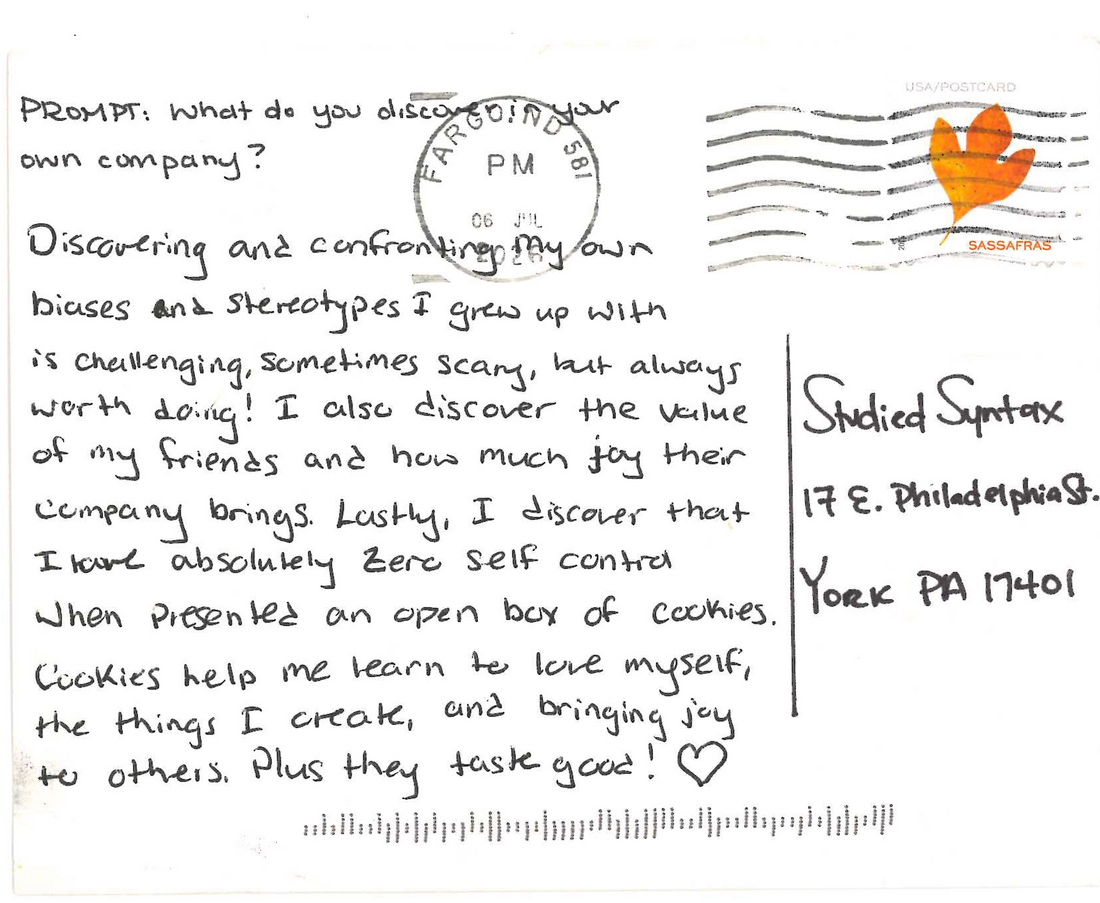 PROMPT: What do you discover in your
own company?
FARGO, ND 581
PM
06 JUL
USA/POSTCARD
SASSAFRAS
Discovering and confronting my own
biases and stereotypes I grew up with
is challenging, sometimes scary, but always
worth doing! I also discover the value
of my friends and how much joy their
company brings. Lastly, I discover that
I have absolutely zero self control
when presented an open box of cookies.
Cookies help me learn to love myself,
the things I create, and bringing joy
to others. Plus they taste good! ♡
Studied Syntax
17 E. Philadelphia St.
York PA 17401